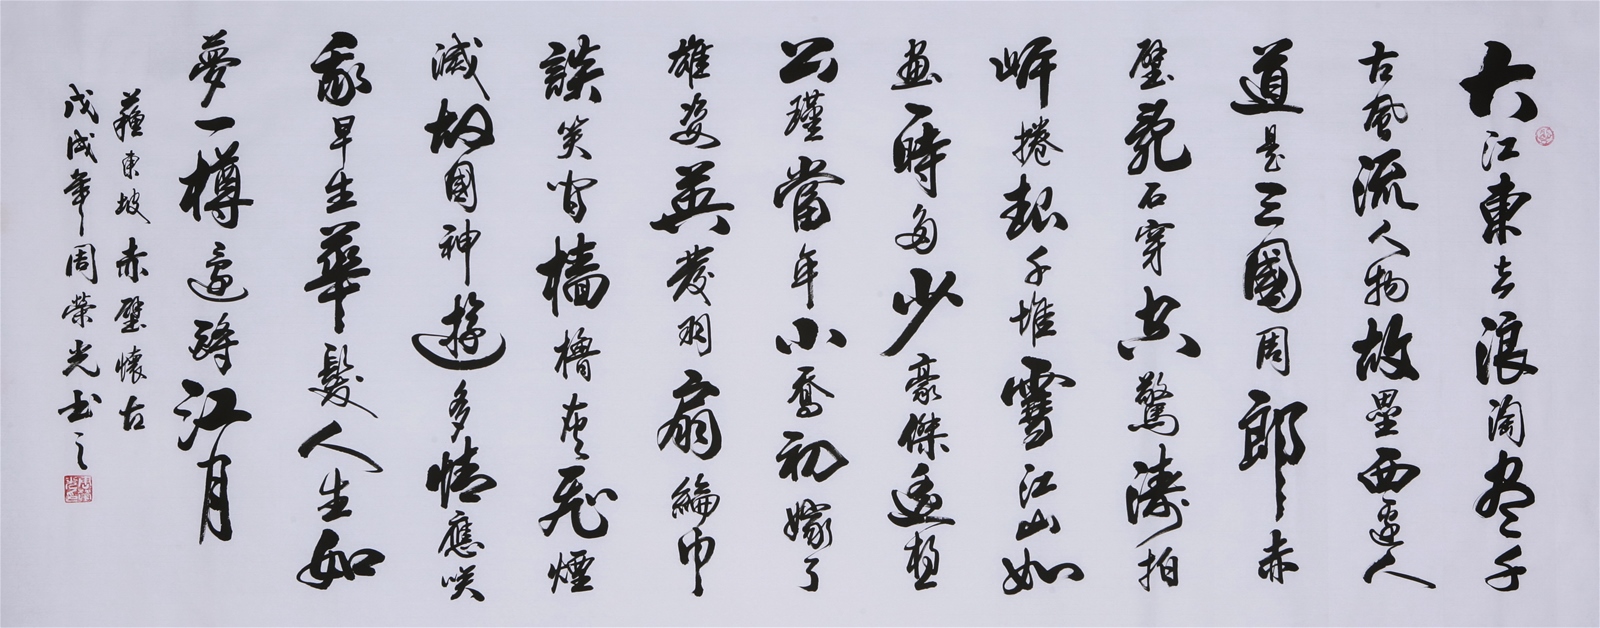 大江東去浪淘尽千
古風流人物故壘西邊人
道是三國周郎赤
壁亂石穿空驚濤拍
岸捲起千堆雪江山如
畫一時多少豪傑遙想
公瑾當年小喬初嫁了
雄姿英發羽扇綸巾
談笑間檣櫓灰飛煙
滅故國神遊多情應笑
我早生華髮人生如
夢一樽還酹江月
蘇東坡赤壁懷古
戊戌年周榮光书之